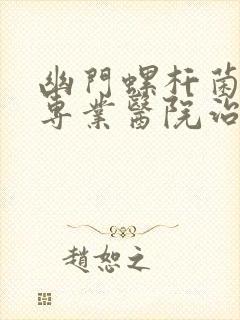 幽門螺杆菌
專業醫院治
趙恕之